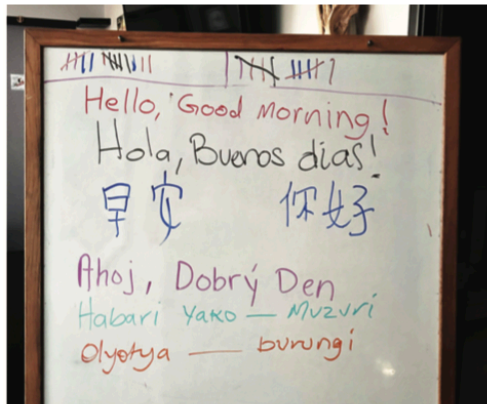 Hello, Good Morning!
Hola, Buenos días!
早安 你好
Ahoj, Dobrý Den
Habari Yako — Muzuri
Olyotya — burungi